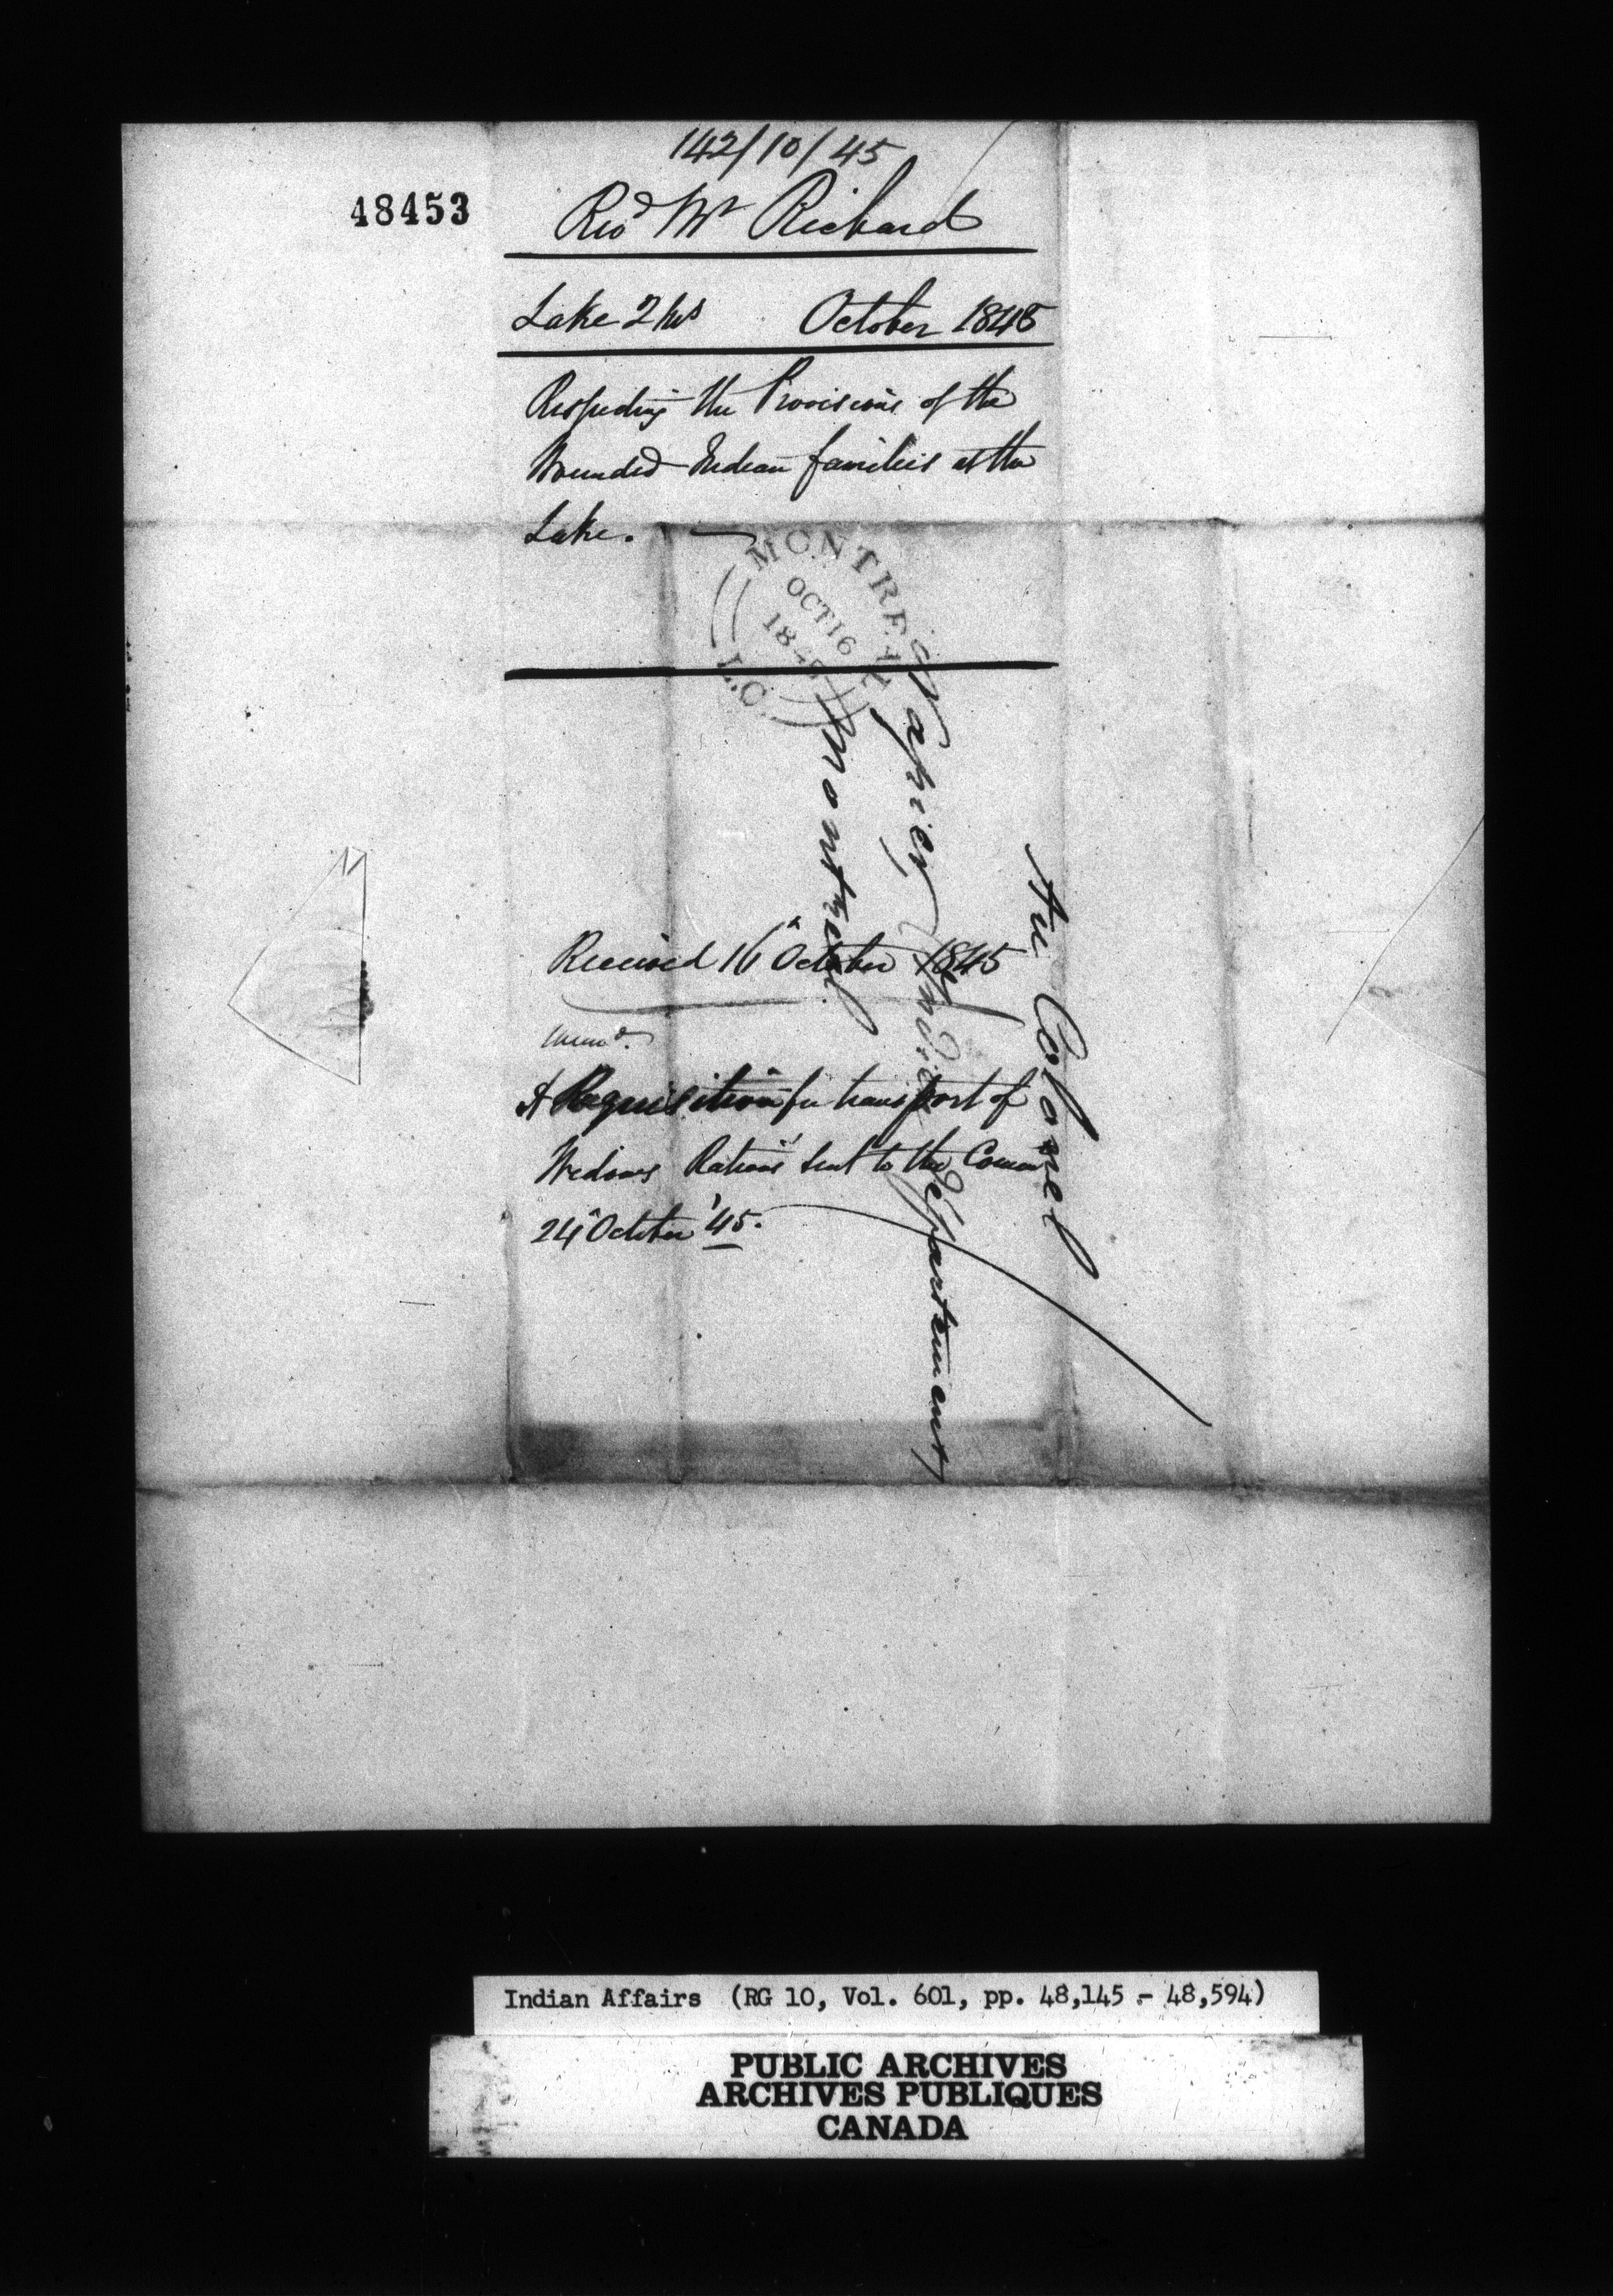 142/10/45
48453
Revd Mr Richard
Lake 2 Mts October 1845
Respecting the Provisions of the
Wounded Indian families at the
Lake.
MONTREAL
OCT 16
1845
L.C.
Au Colonel
Napier Indian Department
Montreal
Received 16 October 1845
Memo.
A Requisition for transport of
Widows Rations sent to the Comm
24 October '45.
Indian Affairs (RG 10, Vol. 601, pp. 48,145 - 48,594)
PUBLIC ARCHIVES
ARCHIVES PUBLIQUES
CANADA